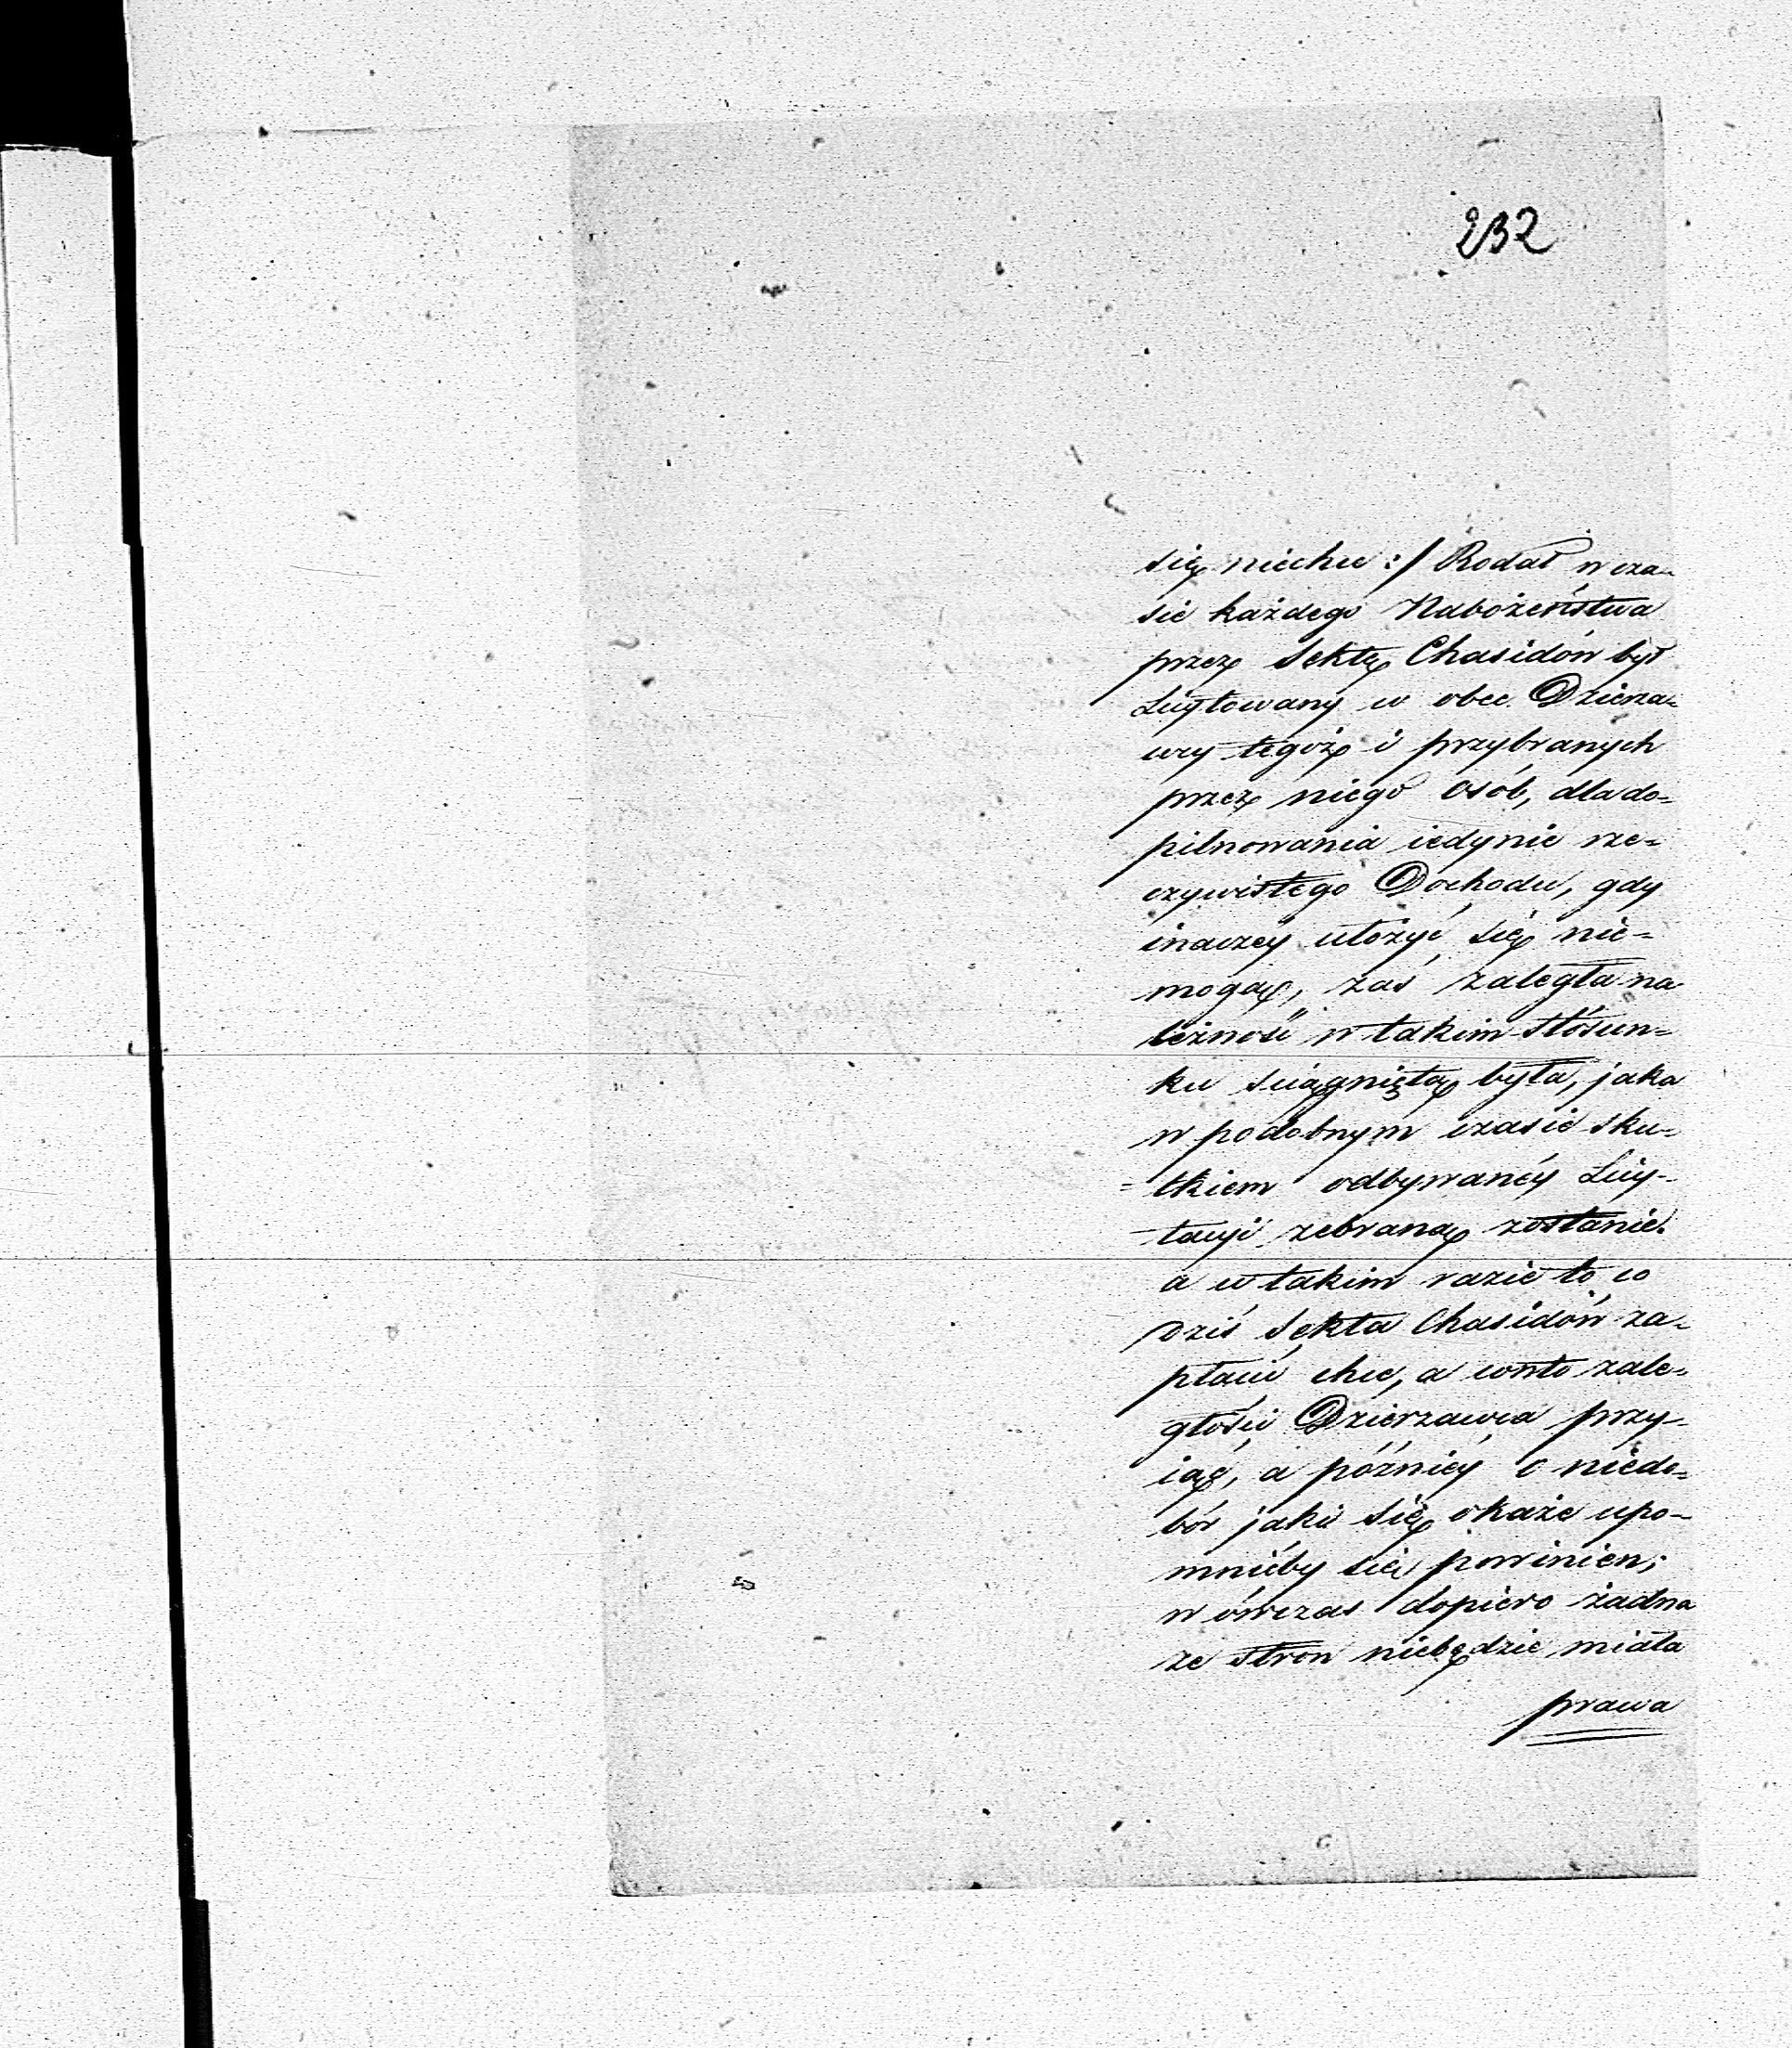 232
się niechce :/ Rodał w cza-
sie każdego Nabożeństwa
przez Sektę Chasidów był
Licytowany w obec Dzierza-
wcy tegoż i przybranych
przez niego osób, dla do-
pilnowania iedynie rze-
czywistego Dochodu, gdy
inaczey ułożyć się nie-
mogą, zaś zaległa na
leżność w takim stósun-
ku sciągniętą była, jaka
w podobnym czasie sku-
tkiem odbywaney Licy-
tacyi zebraną zostanie.
a w takim razie to, co
dziś Sekta Chasidów za-
płacić chce, a conto zale-
głości Dzierzawca przy-
iąć, a późniey o niedo-
bór jaki się okaże upo-
mniećby się powinien;
w ówczas dopiero żadna
ze stron niebędzie miała
prawa